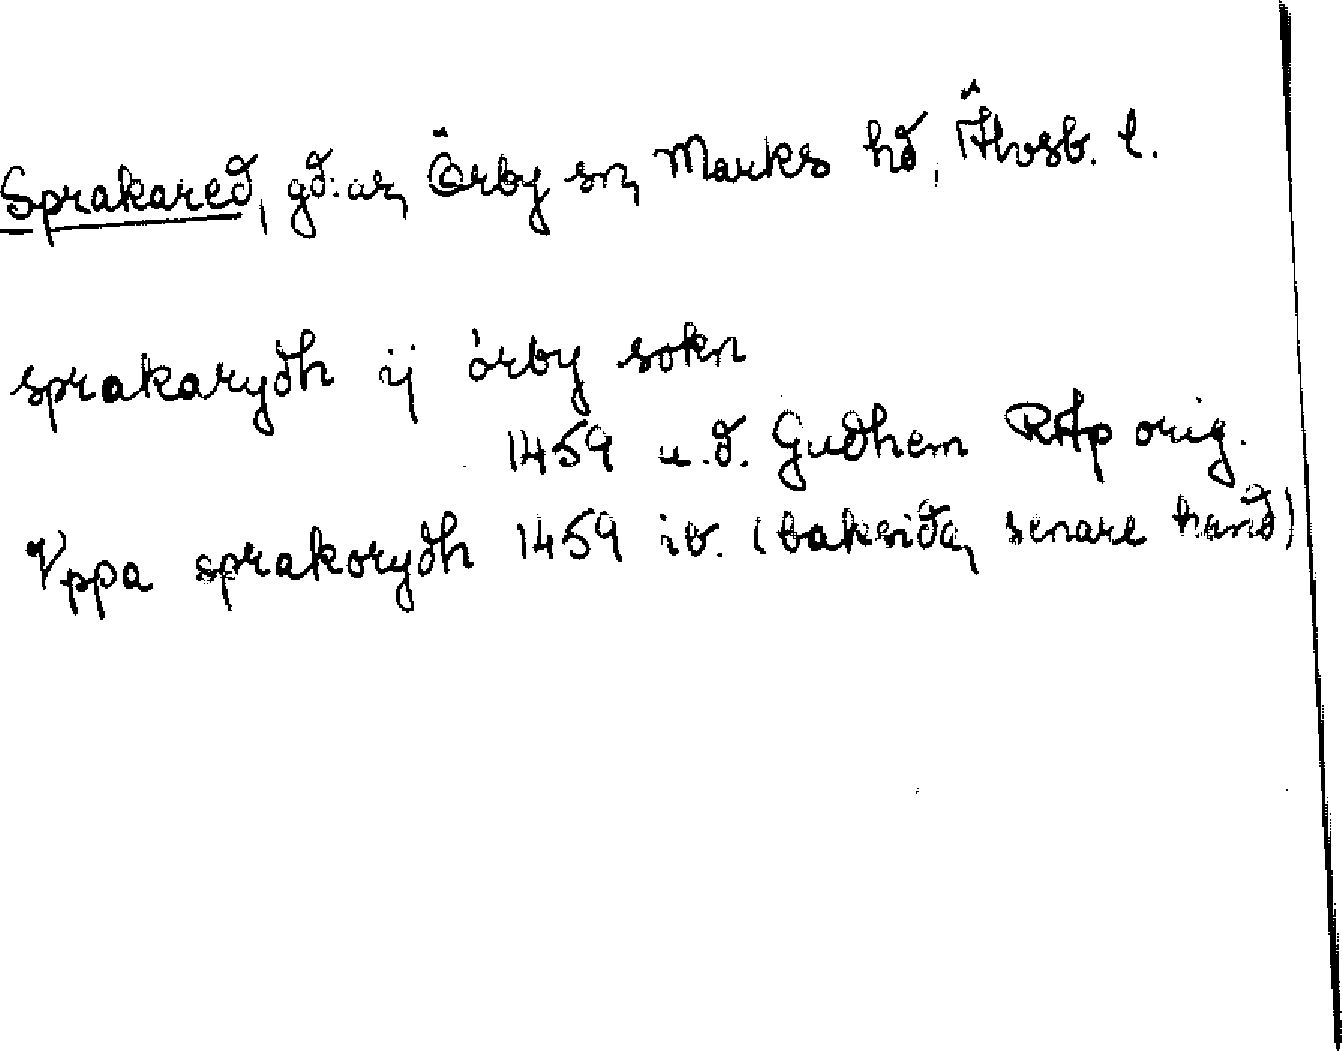 Sprakared, gd:ar, Örby sn, Marks hd, Älvsb. l.
sprakarydh ij örby sokn
1459 u.d. Gudhem RAp orig.
Vppa sprakorydh 1459 ib. (baksida, senare hand)